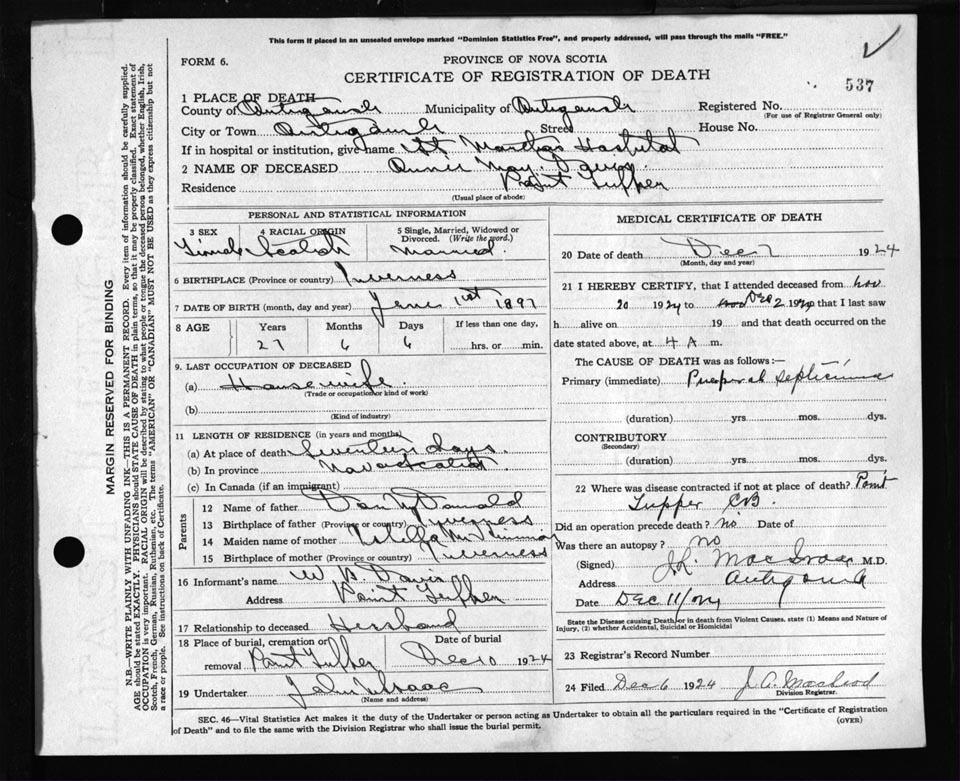 This form if placed in an unsealed envelope marked "Dominion Statistics Free", and properly addressed, will pass through the mails "FREE."
FORM 6.
PROVINCE OF NOVA SCOTIA
CERTIFICATE OF REGISTRATION OF DEATH
537
1 PLACE OF DEATH
County of Antigonish Municipality of Antigonish Registered No.
(For use of Registrar General only)
City or Town Antigonish Street House No.
If in hospital or institution, give name St Marthas Hospital
2 NAME OF DECEASED Annie May Davis
Residence Point Tupper
(Usual place of abode)
MARGIN RESERVED FOR BINDING
N.B.—WRITE PLAINLY WITH UNFADING INK—THIS IS A PERMANENT RECORD. Every item of information should be carefully supplied.
AGE should be stated EXACTLY. PHYSICIANS should STATE CAUSE OF DEATH in plain terms, so that it may be properly classified. Exact statement of
OCCUPATION is very important. RACIAL ORIGIN will be described by stating to what people or tongue the deceased person belonged, whether English, Irish,
Scotch, French, German, Russian, Ruthenian, etc. The terms "AMERICAN" OR "CANADIAN" MUST NOT BE USED as they express citizenship but not
a race or people. See instructions on back of Certificate.
PERSONAL AND STATISTICAL INFORMATION
3 SEX 4 RACIAL ORIGIN 5 Single, Married, Widowed or
Divorced. (Write the word.)
Female Scotch Married
6 BIRTHPLACE (Province or country) Inverness
7 DATE OF BIRTH (month, day and year) June 1st 1897
8 AGE Years Months Days If less than one day,
27 6 6 hrs. or min.
9. LAST OCCUPATION OF DECEASED
(a) Housewife
(Trade or occupation or kind of work)
(b)
(Kind of industry)
11 LENGTH OF RESIDENCE (in years and months)
(a) At place of death Seventeen days
(b) In province Nova Scotia
(c) In Canada (if an immigrant)
Parents
12 Name of father Dan McDonald
13 Birthplace of father (Province or country) Inverness
14 Maiden name of mother
15 Birthplace of mother (Province or country) Inverness
16 Informant's name Davis
Address Point Tupper
17 Relationship to deceased Husband
18 Place of burial, cremation or Date of burial
removal Point Tupper Dec 10 1924
19 Undertaker John
(Name and address)
MEDICAL CERTIFICATE OF DEATH
20 Date of death Dec 7 1924
(Month, day and year)
21 I HEREBY CERTIFY, that I attended deceased from Nov
20 1924 to Dec 2 1924 that I last saw
h alive on 19 and that death occurred on the
date stated above, at 4 A m.
The CAUSE OF DEATH was as follows:—
Primary (immediate) Puerperal septicimia
(duration) yrs. mos. dys.
CONTRIBUTORY
(Secondary)
(duration) yrs. mos. dys.
22 Where was disease contracted if not at place of death? Point
Tupper CB
Did an operation precede death? No Date of
Was there an autopsy? no
(Signed) M.D.
Address Antigonish
Date Dec 11/24
State the Disease causing Death, or in death from Violent Causes, state (1) Means and Nature of
Injury, (2) whether Accidental, Suicidal or Homicidal
23 Registrar's Record Number
24 Filed Dec 6 1924 J. A. MacLeod
Division Registrar.
SEC. 46—Vital Statistics Act makes it the duty of the Undertaker or person acting as Undertaker to obtain all the particulars required in the "Certificate of Registration
of Death" and to file the same with the Division Registrar who shall issue the burial permit.
(OVER)